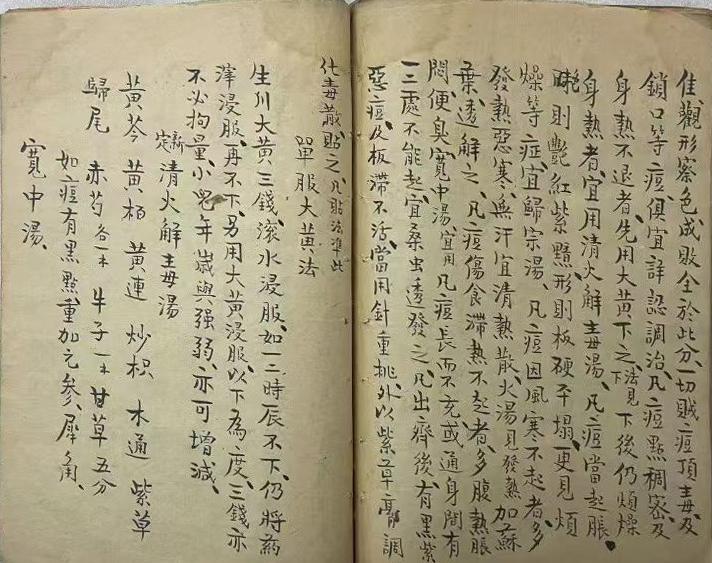 佳觀形察色成敗全於此分一切賊痘頂毒及
鎖口等痘俱宜詳認調治凡痘點稠密及
身熱不退者先用大黃下之法見下後仍煩燥
身熱者宜用清火解毒湯凡痘當起脹
時則艷紅紫黯形則板硬平塌更見煩
燥等症宜歸宗湯凡痘因風寒不起者多
發熱惡寒無汗宜清熱散火湯見發熱加蘇
葉透解之凡痘傷食滯熱不起者多腹熱脹
悶便臭寬中湯宜用凡痘長而不充或通身間有
一二處不能起宜桑虫透發之凡出齊後有黑紫
惡痘及板滯不活當用針重挑外以紫草膏調
化毒散貼之凡貼法準此
單服大黃法
生川大黃三錢滾水浸服如一二時辰不下仍將药
滓浸服再不下另用大黃浸服以下為度三錢亦
不必拘量小児年歲與强弱亦可增減
新定清火解毒湯
黃芩 黃柏 黃連 炒枳 木通 紫草
歸尾 赤芍各一不 牛子一不 甘草五分
如痘有黑點重加元參犀角
寬中湯